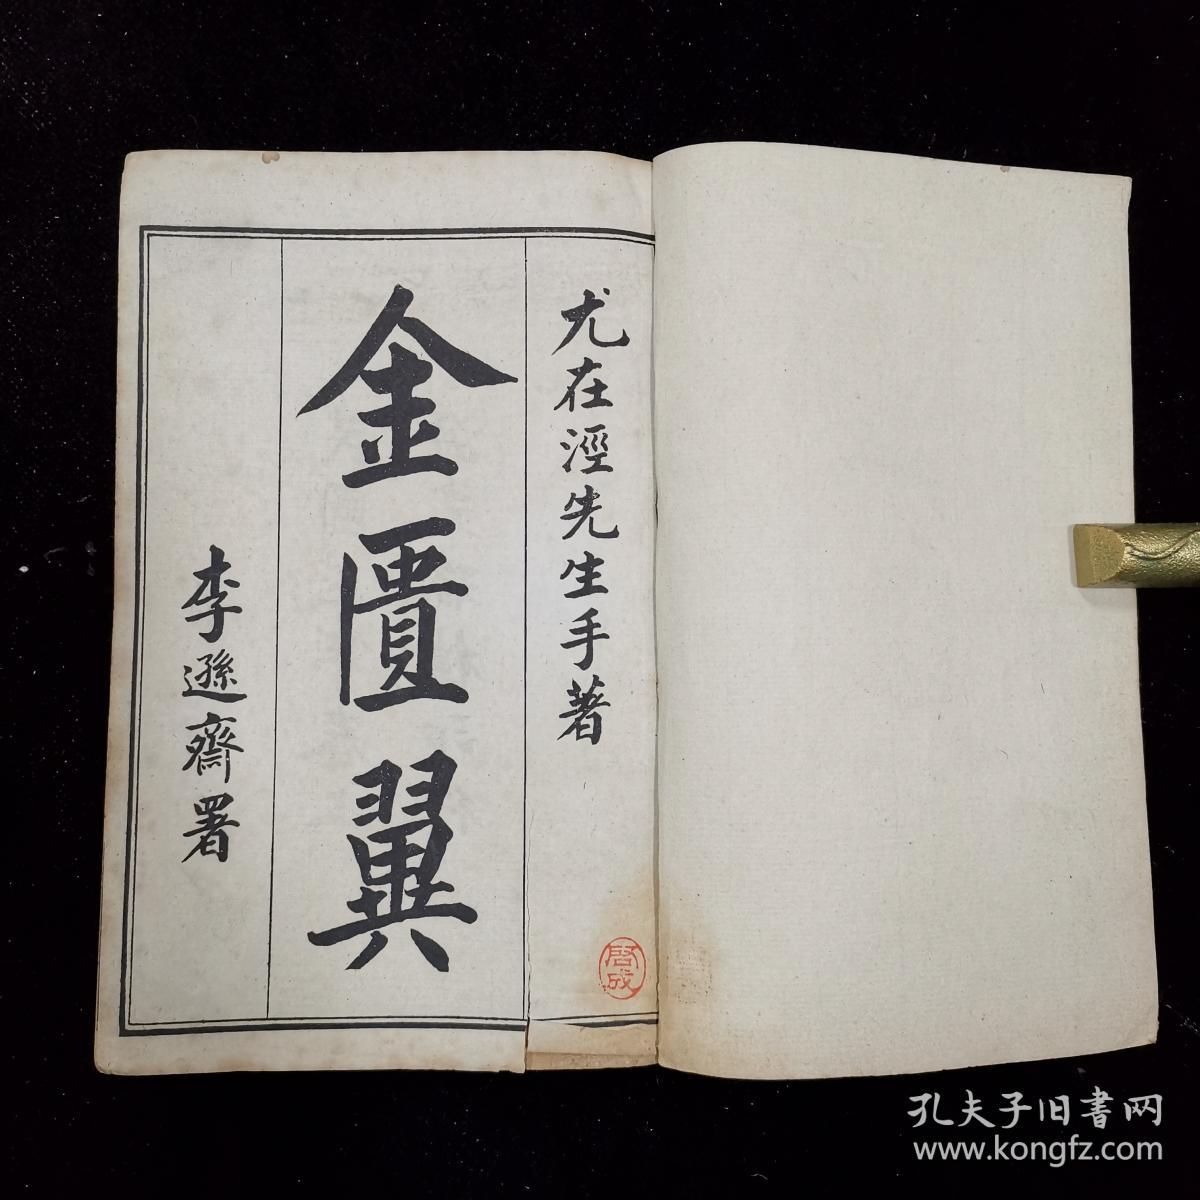 尤在涇先生手著
金匱翼
李遜齋署
啓成
孔夫子旧書网
www.kongfz.com